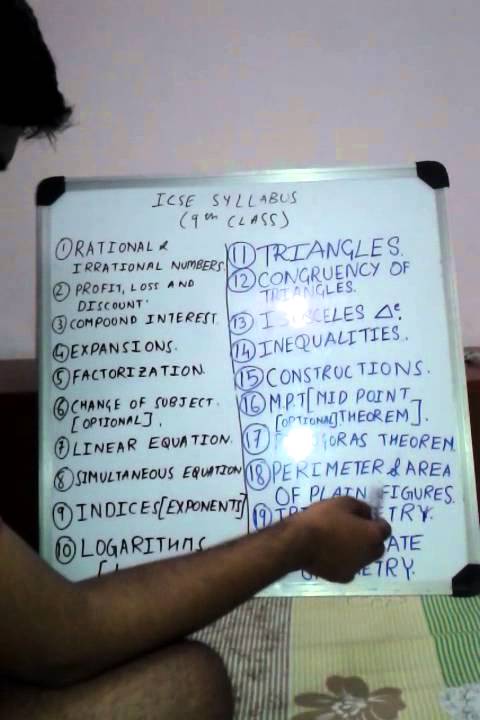 ICSE SYLLABUS
(9th CLASS)
① RATIONAL &
IRRATIONAL NUMBERS
② PROFIT, LOSS AND
DISCOUNT.
③ COMPOUND INTEREST.
④ EXPANSIONS.
⑤ FACTORIZATION.
⑥ CHANGE OF SUBJECT.
[OPTIONAL].
⑦ LINEAR EQUATION.
⑧ SIMULTANEOUS EQUATION
⑨ INDICES [EXPONENTS]
⑩ LOGARITHMS
⑪ TRIANGLES.
⑫ CONGRUENCY OF
TRIANGLES.
⑬ ISOSCELES Δe.
⑭ INEQUALITIES.
⑮ CONSTRUCTIONS.
⑯ M.P.T [MID POINT
[OPTIONAL] THEOREM].
⑰ THEOREM
⑱ PERIMETER & AREA
OF PLAIN FIGURES.
⑲